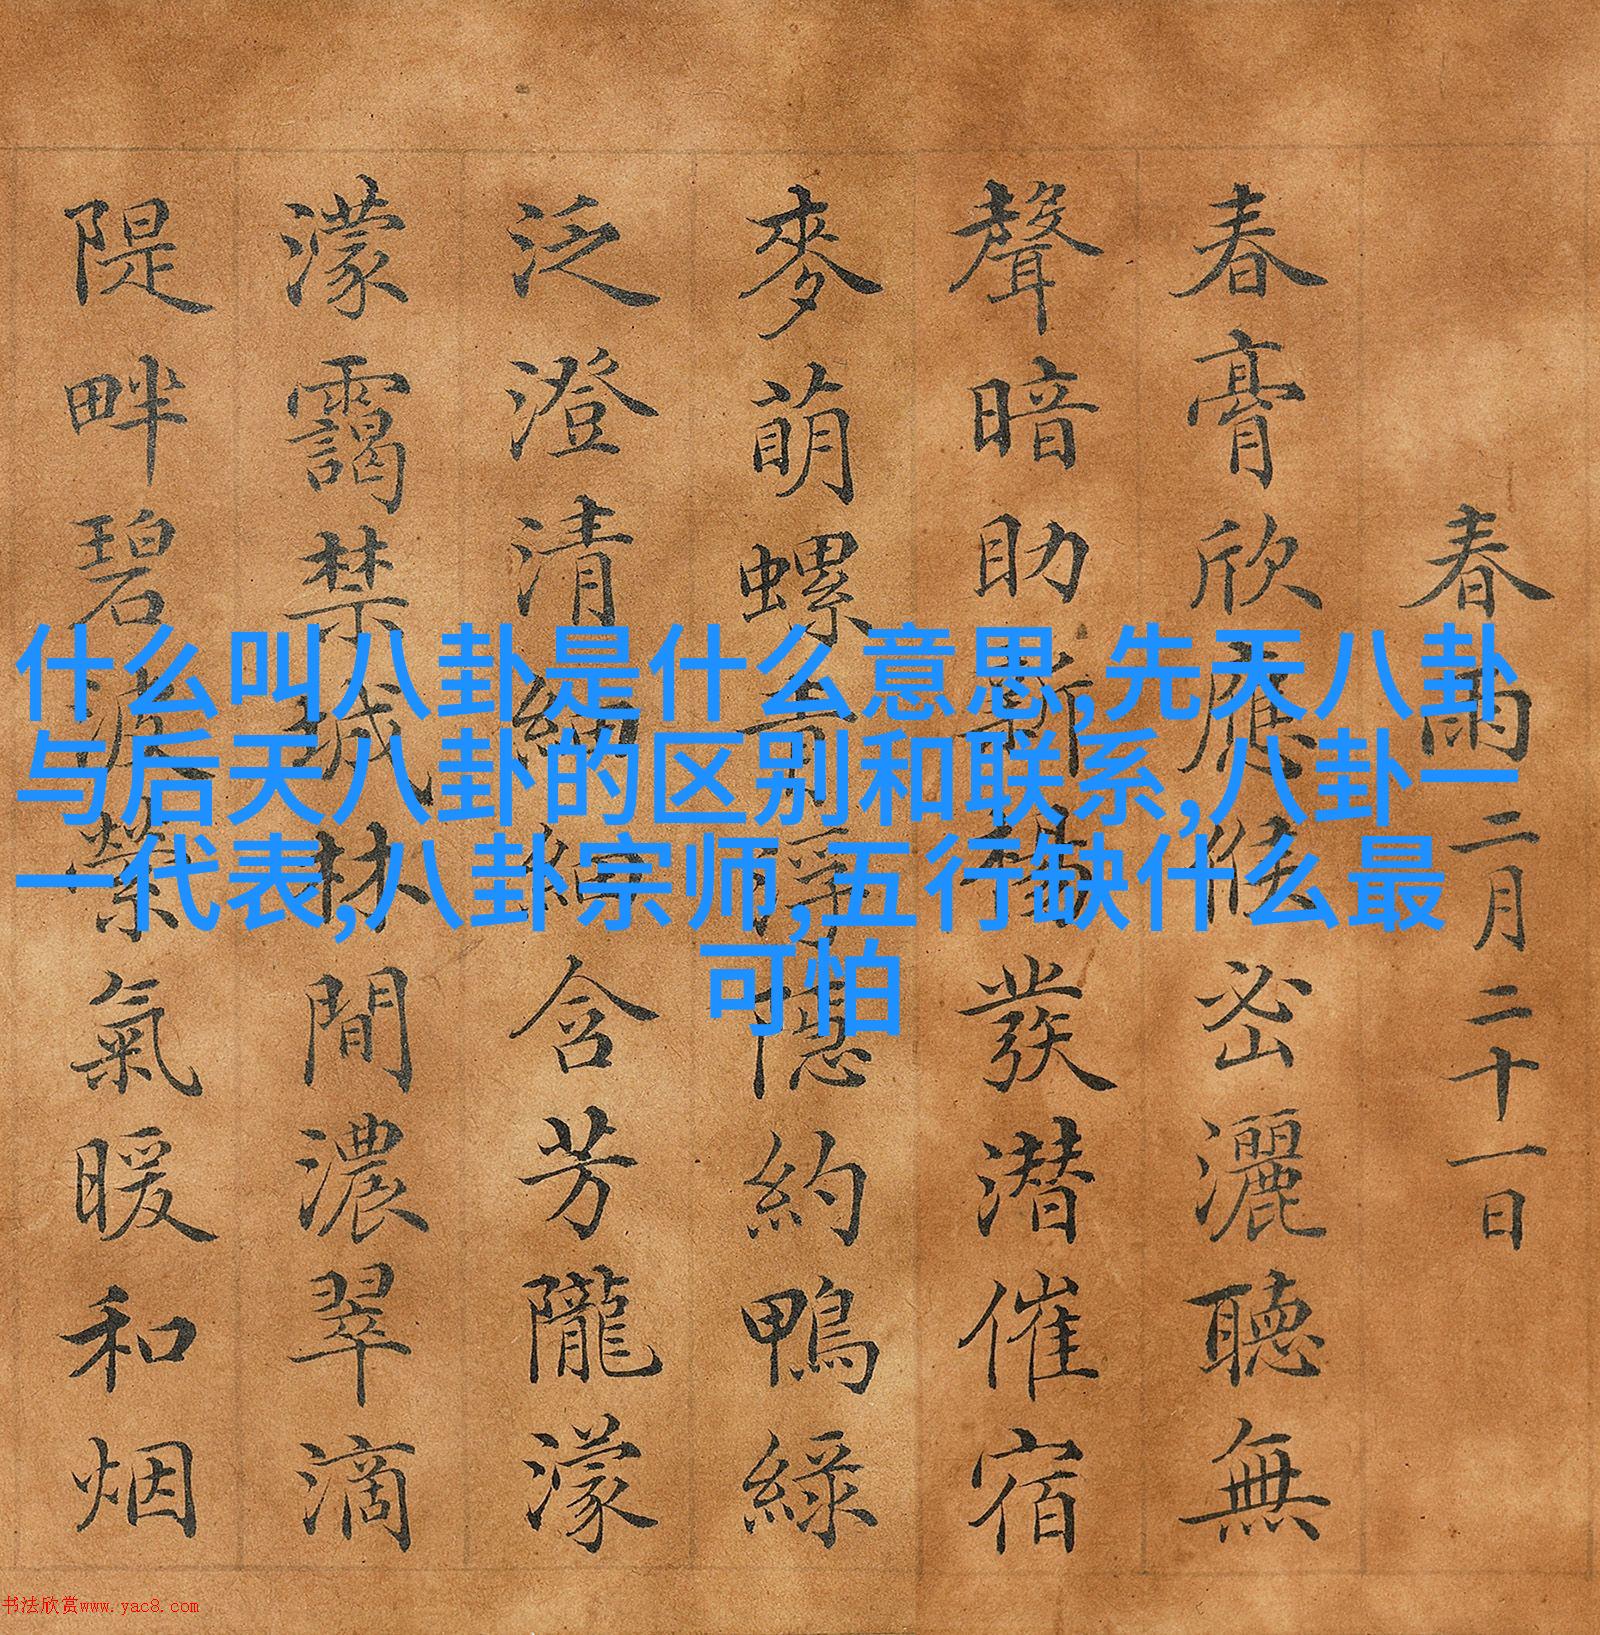 春雨二月二十一日
春膏欣應候密灑聽無
聲暗助新楊發潛催宿
麥萌螺青浮隱約鴨綠
泛澄清絪縕含芳隴濛
濛靄禁城林間濃翠滴
隄畔碧波縈氣暖和烟
什么叫八卦是什么意思,先天八卦
与后天八卦的区别和联系,八卦一
一代表,八卦宗师,五行缺什么最
可怕
书法欣赏www.yac8.com